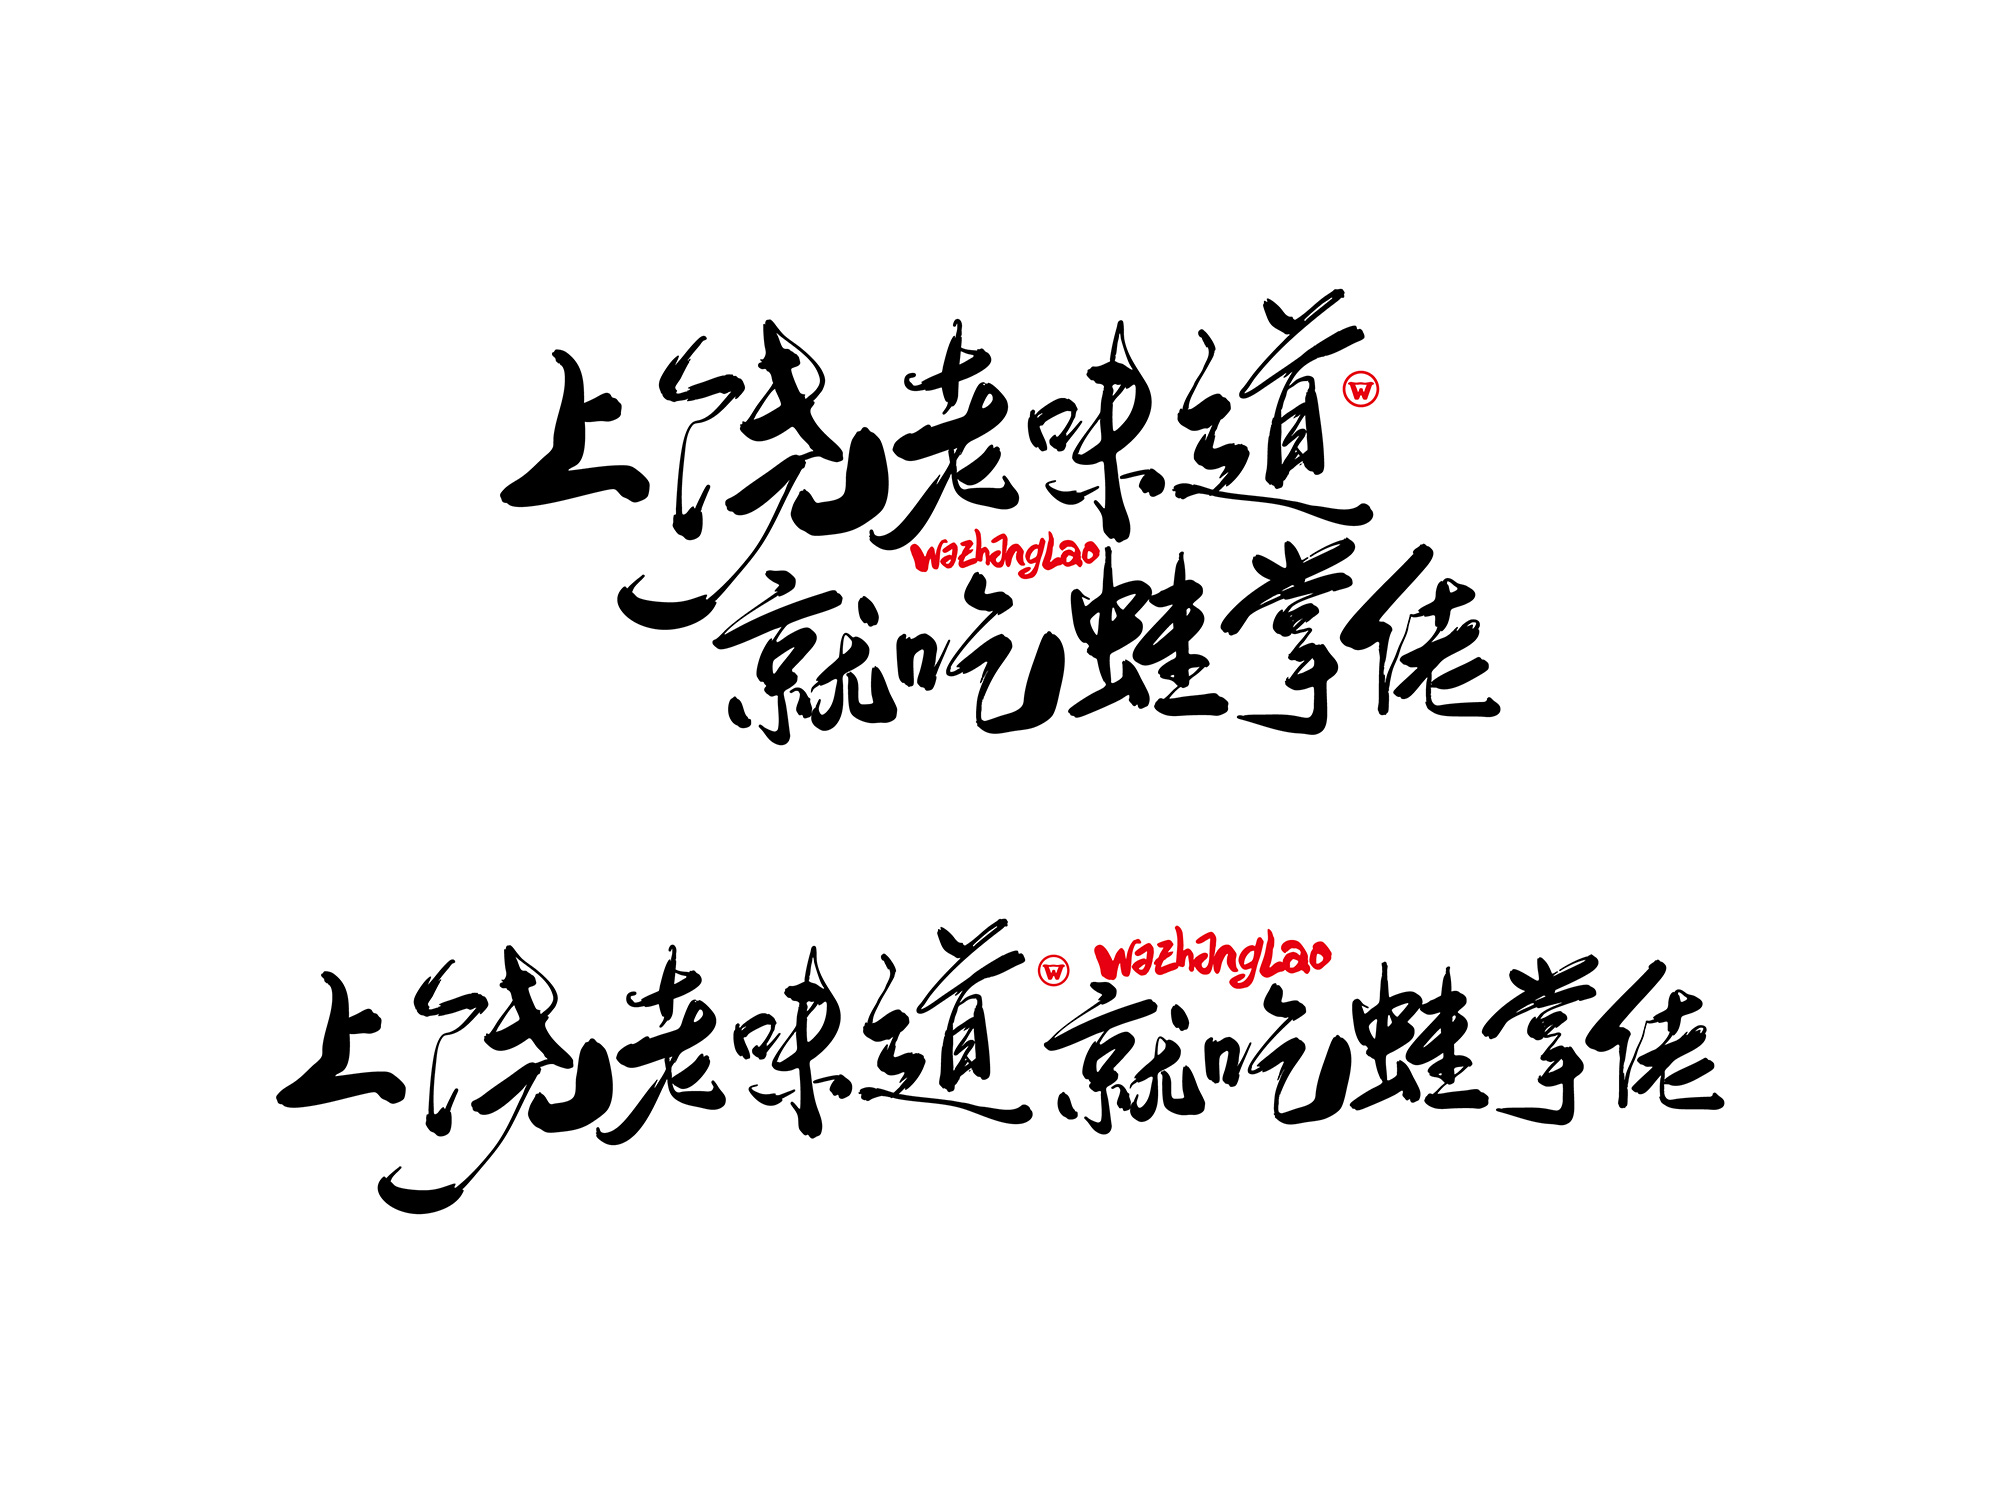 上饶老味道
W
wazhangLao
就吃蛙掌佬
上饶老味道 W wazhangLao
就吃蛙掌佬